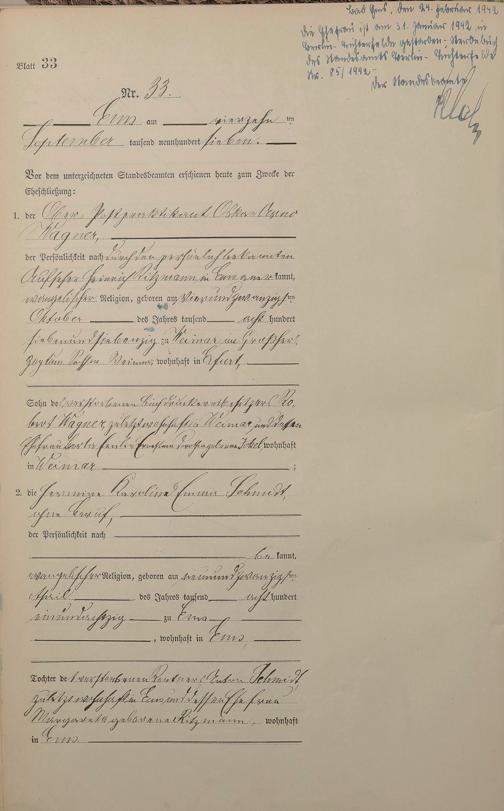 Bad Ems, den 24. Februar 1942
die Ehefrau ist am 31. Januar 1942 in
Berlin-Lichterfelde gestorben - Sterbebuch
des Standesamts Berlin-Lichterfelde
Nr. 85/1942-
der Standesbeamte
Blatt 33
Nr. 33.
Ems am vierzehn ten
September tausend neunhundert sieben.
Vor dem unterzeichneten Standesbeamten erschienen heute zum Zwecke der
Eheschließung:
1. der Ober-Postpraktikant Oskar Arno
Wagner,
der Persönlichkeit nach durch den persönlich bekannten
Aufseher Heinrich Ritzmann in kannt,
evangelischer Religion, geboren am vierundzwanzigsten
Oktober des Jahres tausend acht hundert
siebenundsiebenzig zu Weimar im Großher-
zogtum Sachsen Weimar, wohnhaft in Erfurt,
Sohn des verstorbenen Buchdruckereibesitzers Ro-
bert Wagner, zuletzt wohnhaft in Weimar und dessen
Ehefrau geborene wohnhaft
in Weimar ;
2. die Hermine Karoline Emma Schmidt,
ohne Beruf,
der Persönlichkeit nach
be kannt,
evangelischer Religion, geboren am neunundzwanzigsten
April des Jahres tausend acht hundert
einundachtzig zu Ems
, wohnhaft in Ems,
Tochter des verstorbenen Rentners Anton Schmidt,
zuletzt wohnhaft in Ems und dessen Ehefrau
Margareta geborene Ritzmann, wohnhaft
in Ems